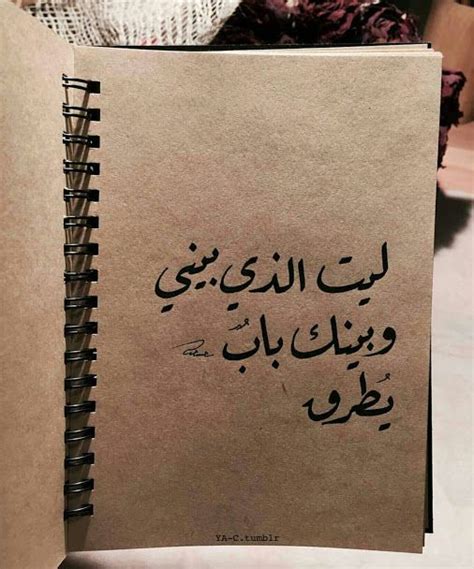 ليت الذي بيني
وبينك بابٌ
يُطرق
YA-C.tumblr